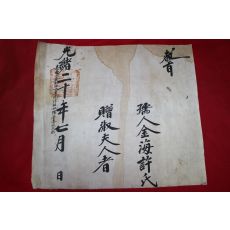 敎旨
孺人金海許氏
贈淑夫人者
光緖二十年七月 日